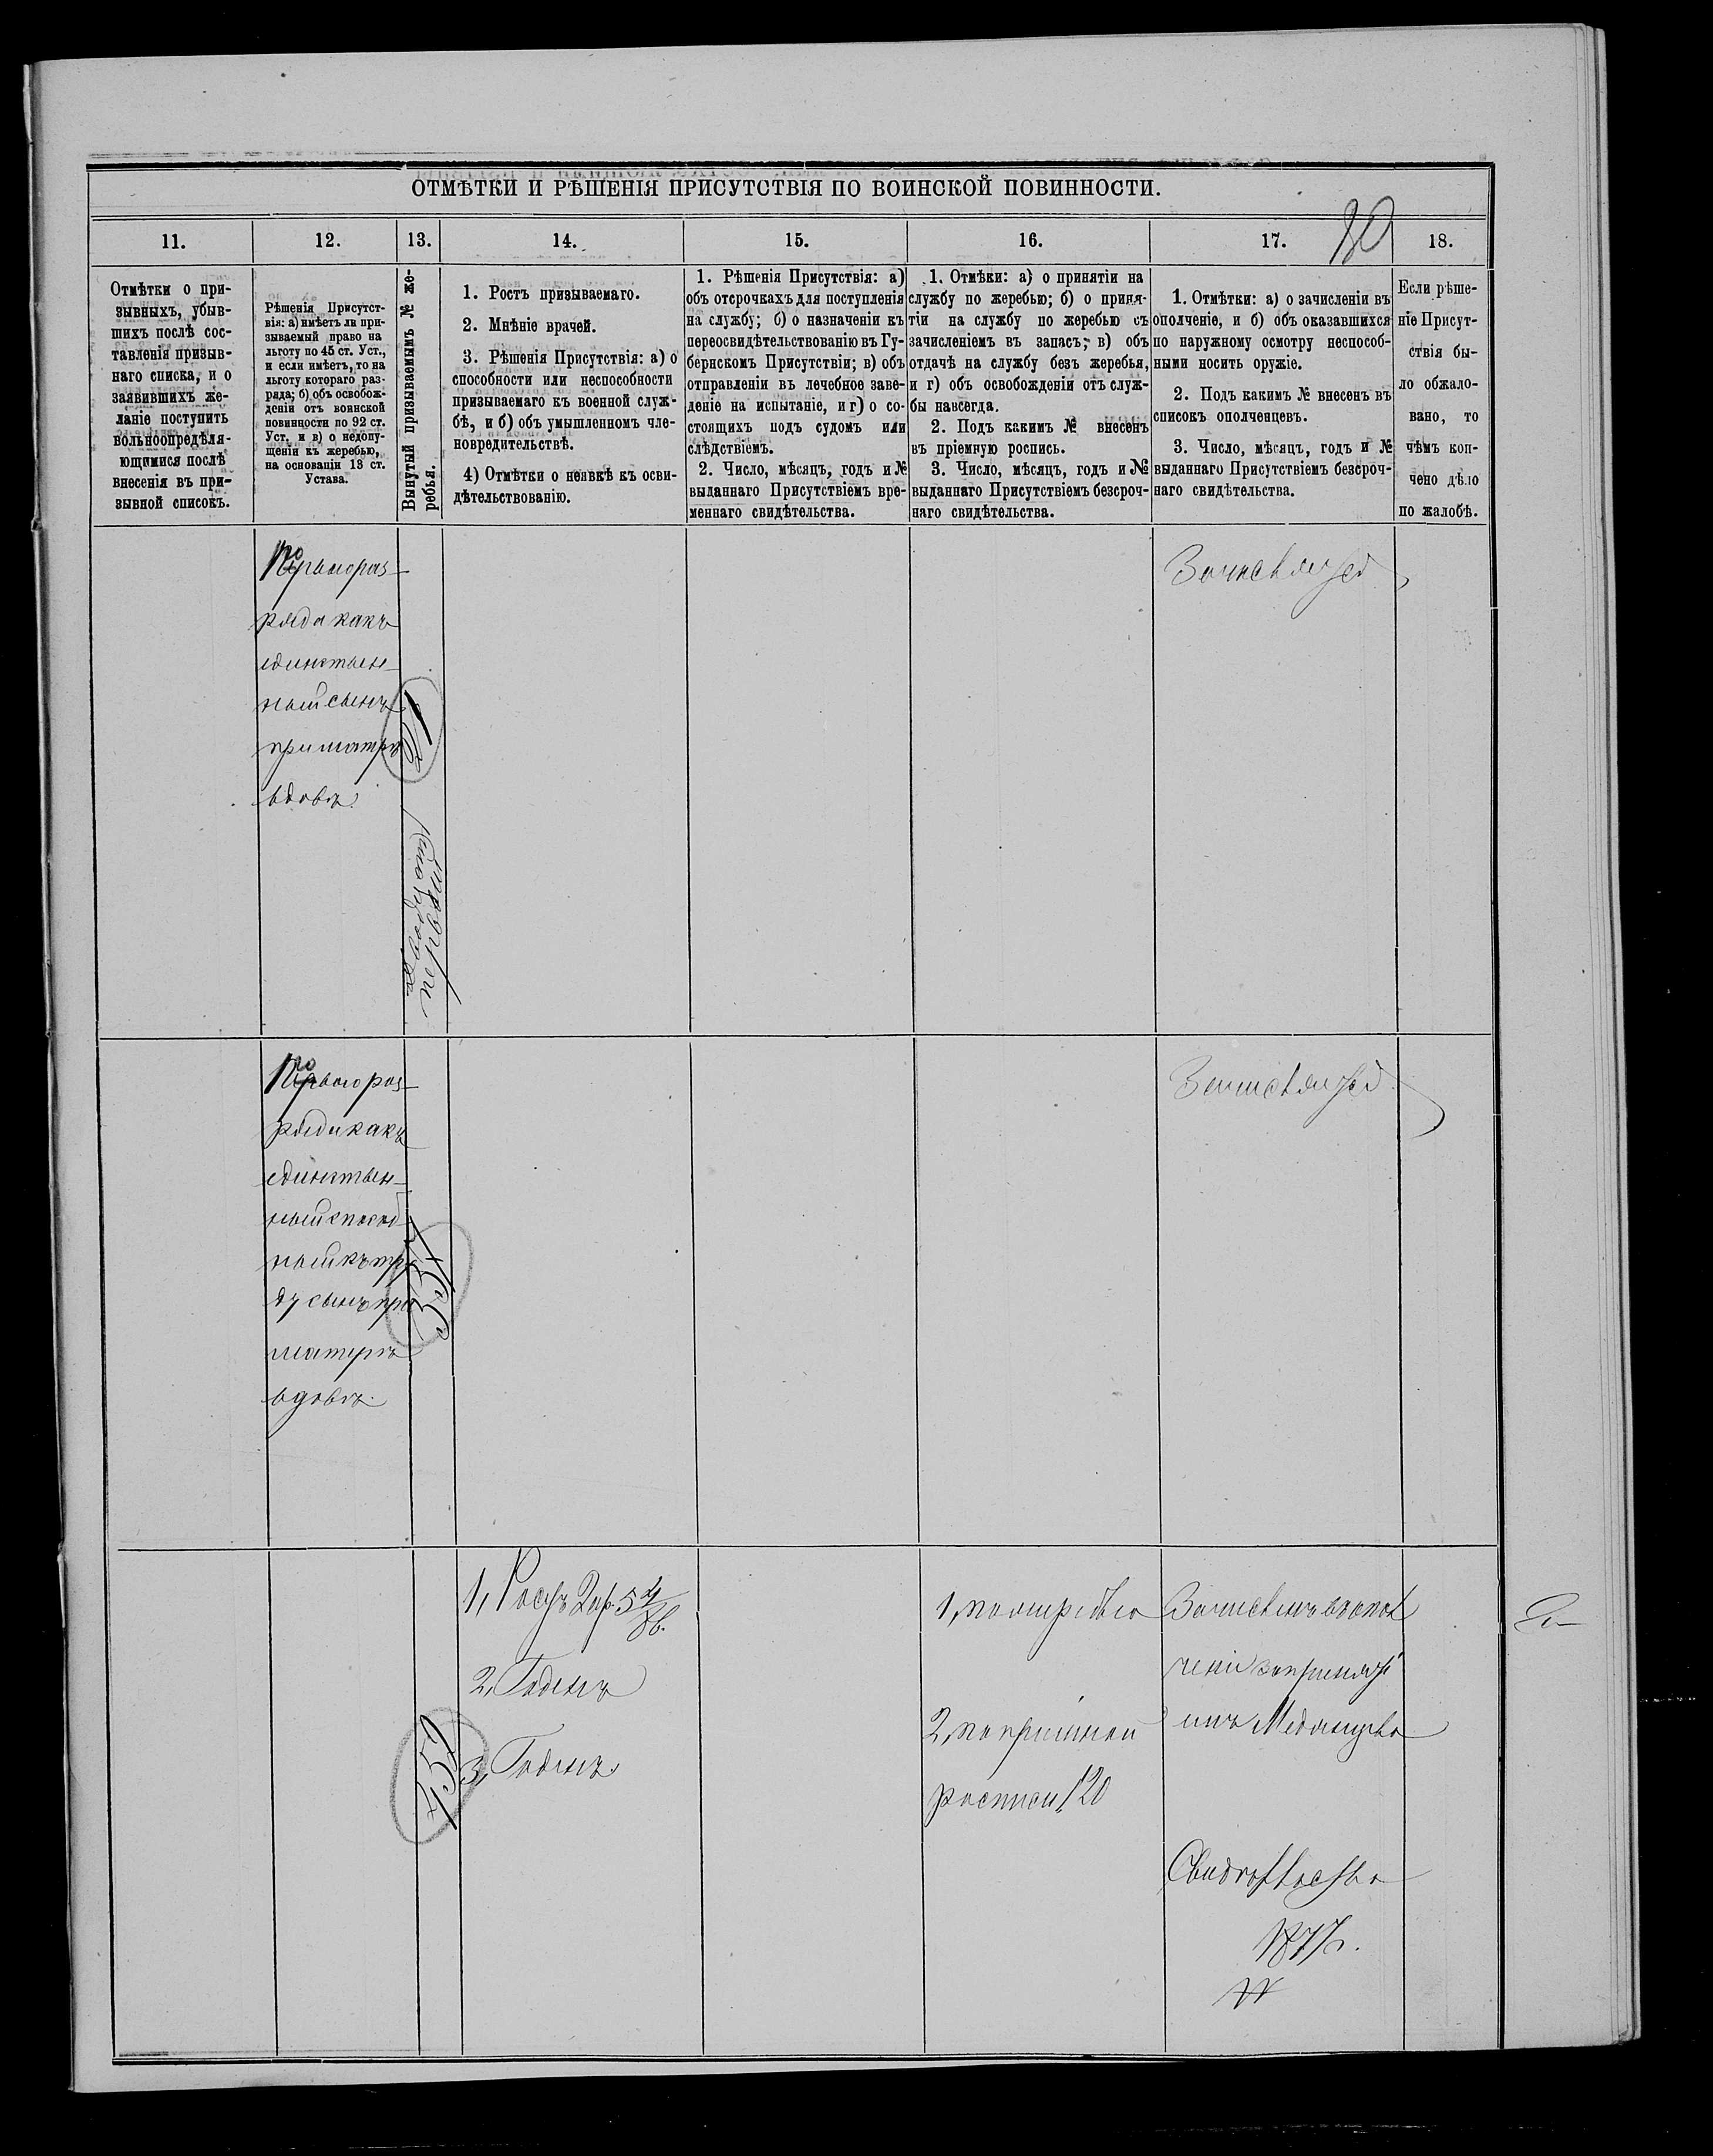 ОТМѢТКИ И РѢШЕНІЯ ПРИСУТСТВІЯ ПО ВОИНСКОЙ ПОВИННОСТИ.
80
11.
12.
13.
14.
15.
16.
17.
18.
Отмѣтки о при-
зывныхъ, убыв-
шихъ послѣ сос-
тавленія призыв-
наго списка, и о
заявившихъ же-
ланіе поступить
вольноопредѣля-
ющимися послѣ
внесенія въ при-
зывной списокъ.
Рѣшенія Присутст-
вія: а) имѣетъ ли при-
зываемый право на
льготу по 45 ст. Уст.,
и если имѣетъ, то на
льготу котораго раз-
ряда; б) объ освобож-
деніи отъ воинской
повинности по 92 ст.
Уст. и в) о недопу-
щеніи къ жеребью,
на основаніи 13 ст.
Устава.
Вынутый призываемымъ № же-
ребья.
1. Ростъ призываемаго.
2. Мнѣніе врачей.
3. Рѣшенія Присутствія: а) о
способности или неспособности
призываемаго къ военной служ-
бѣ, и б) объ умышленномъ чле-
новредительствѣ.
4) Отмѣтки о неявкѣ къ осви-
дѣтельствованію.
1. Рѣшенія Присутствія: а)
объ отсрочкахъ для поступленія
на службу; б) о назначеніи къ
переосвидѣтельствованію въ Гу-
бернскомъ Присутствіи; в) объ
отправленіи въ лечебное заве-
деніе на испытаніе, и г) о со-
стоящихъ подъ судомъ или
слѣдствіемъ.
2. Число, мѣсяцъ, годъ и №
выданнаго Присутствіемъ вре-
меннаго свидѣтельства.
1. Отмѣки: а) о принятіи на
службу по жеребью; б) о приня-
тіи на службу по жеребью съ
зачисленіемъ въ запасъ; в) объ
отдачѣ на службу безъ жеребья,
и г) объ освобожденіи отъ служ-
бы навсегда.
2. Подъ какимъ № внесенъ
въ пріемную роспись.
3. Число, мѣсяцъ, годъ и №
выданнаго Присутствіемъ безсроч-
наго свидѣтельства.
1. Отмѣтки: а) о зачисленіи въ
ополченіе, и б) объ оказавшихся
по наружному осмотру неспособ-
ными носить оружіе.
2. Подъ какимъ № внесенъ въ
списокъ ополченцевъ.
3. Число, мѣсяцъ, годъ и №
выданнаго Присутствіемъ безсроч-
наго свидѣтельства.
Если рѣше-
ніе Присут-
ствія бы-
ло обжало-
вано, то
чѣмъ кон-
чено дѣло
по жалобѣ.
Перваго раз-
ряда какъ
единствен-
ный сынъ
при матери
вдовѣ.
21
двадцать
первый
Зачисляется
Перваго раз-
ряда какъ
единствен-
ный способ
ный къ тру
ду сынъ при
матери
вдовѣ.
Зачисляется
1, Ростъ 2 ар. 5 4/8 в.
2, Годенъ
3, Годенъ.
452
1,
2, по пріемной
росписи 120
Зачисленъ въ опол
ченіе
Свидѣтельство
1877 г.
№